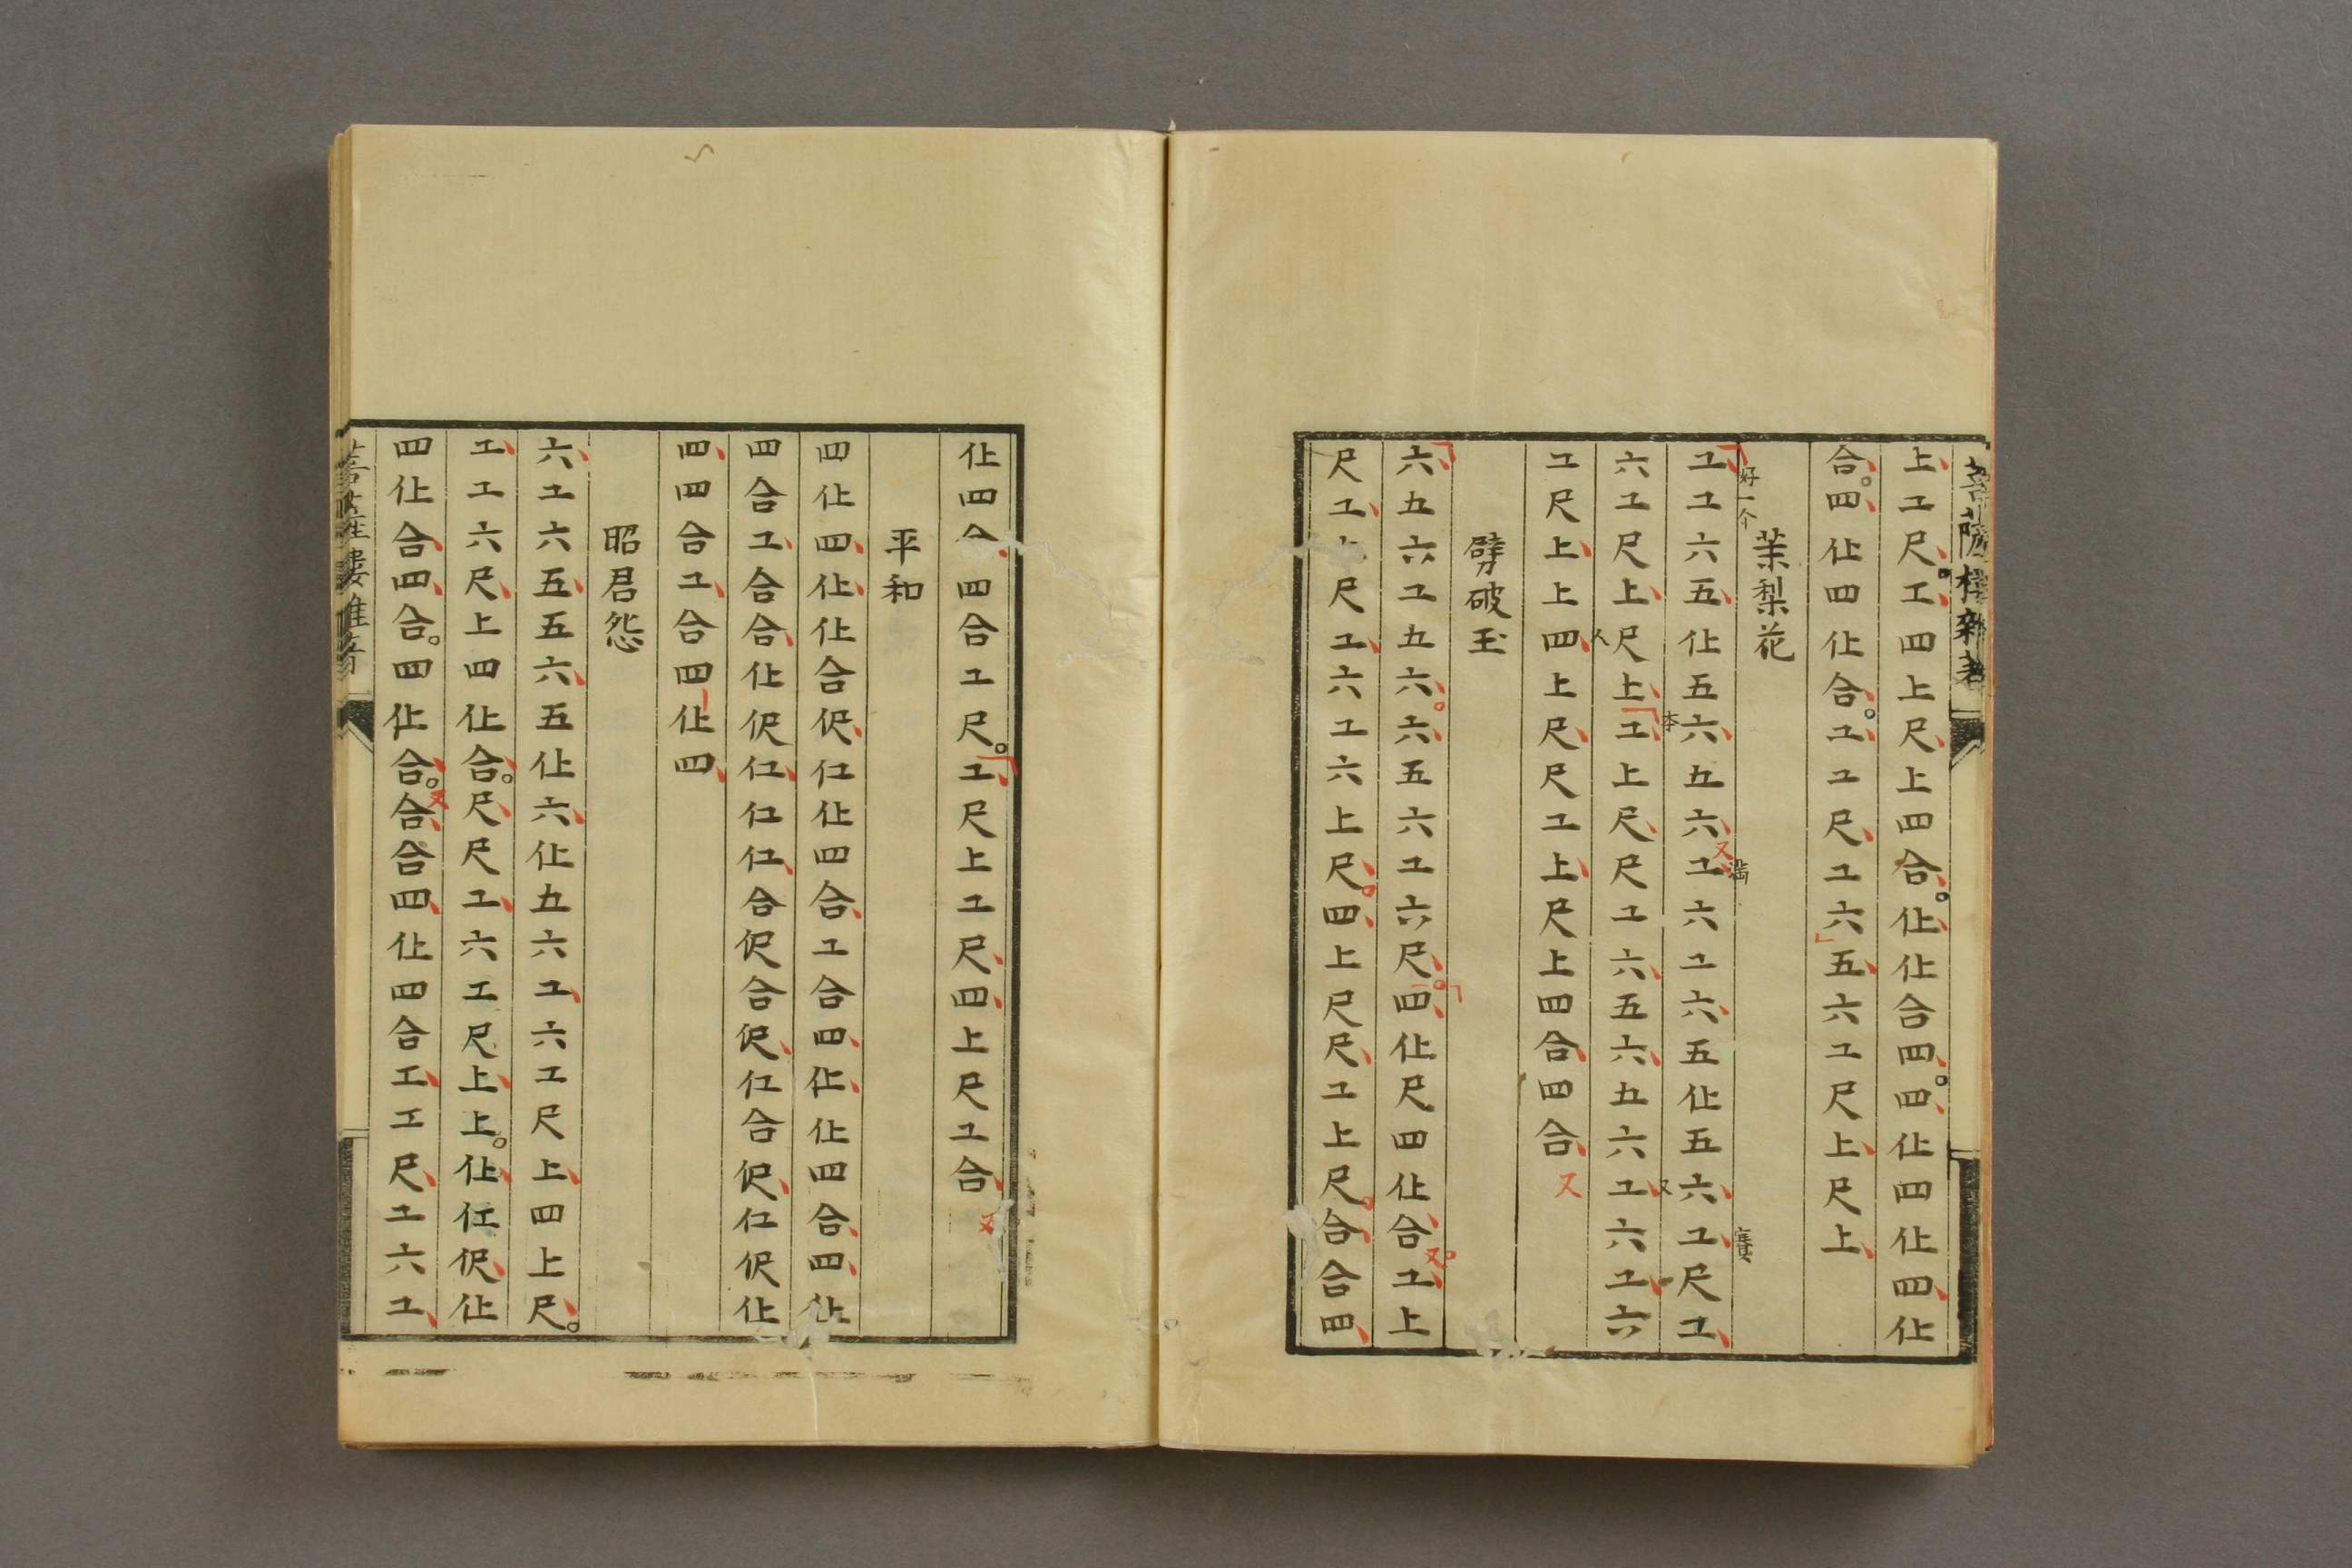 菩薩樓雜
上工尺。工四上尺上四合。仩仩合四。四仩四仩四仩
合。四仩四仩合。工工尺工六五六工尺上尺上
茉梨花
好一个
满
賽
工工六五仩五六五六工六工六五仩五六工尺工
又
本
又
六工尺上尺上工上尺尺工六五六五六工六工六
人
工尺上上四上尺尺工上尺上四合四合又
劈破玉
六五六工五六。六五六工六尺。四仩尺四仩合。工上
又
尺工上尺工六工六上尺。四上尺尺工上尺。合合四
仩四合四合工尺。工尺上工尺四上尺工合又
平和
四仩四仩仩合伬仜仩四合工合四仩仩四合四仩
四合工合合仩伬仜仜仜合伬合伬仜合伬仜伬仩
四四合工合四仩四
昭君怨
六工六五五六五仩六仩五六工六工尺上四上尺。
工工六尺上四仩合。尺尺工六工尺上上。仩仜伬仩
四仩合四合。四仩合。合合四仩四合工工尺工六工
又
菩薩樓